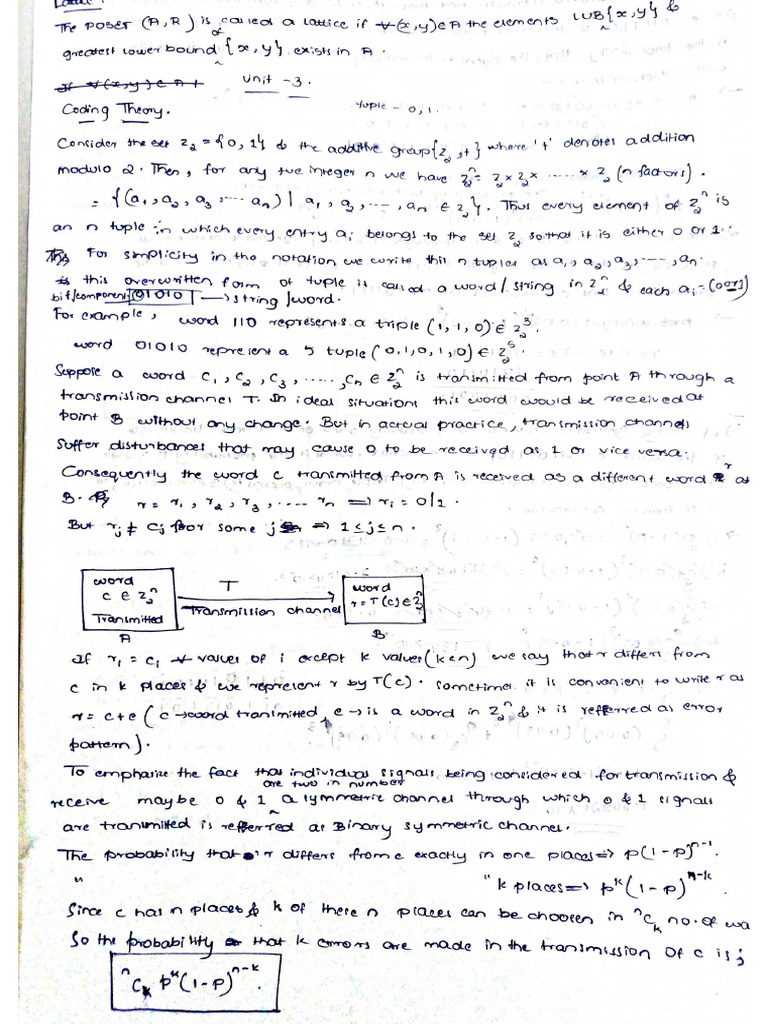 Lattice :
The POSET (A,R) is called a lattice if ∀(x,y)∈A the elements LUB{x,y} &
greatest lower bound of {x,y} exists in A.
Unit -3.
Coding Theory. tuple - 0,1.
Consider the set Z₂={0,1} & the additive group{Z₂,+} where '+' denotes addition
modulo 2. Then, for any +ve integer n we have Z₂ⁿ= Z₂×Z₂× ..... × Z₂ (n factors).
= {(a₁,a₂,a₃, .... aₙ) | a₁, a₂, ---, aₙ ∈ Z₂}. Thus every element of Z₂ⁿ is
an n tuple in which every entry aᵢ belongs to the set Z₂ so that it is either 0 or 1.
For simplicity in the notation we write this n tuples as a₁, a₂, a₃, ---, aₙ.
this overwritten form of tuple is called a word/string in Z₂ⁿ & each aᵢ=(0 or 1)
bit/component 01010 → string/word.
For example, word 110 represents a triple (1,1,0)∈ Z₂³.
word 01010 represent a 5 tuple (0,1,0,1,0)∈ Z₂⁵.
Suppose a word C₁, C₂, C₃, ....., Cₙ ∈ Z₂ⁿ is transmitted from point A through a
transmission channel T. In ideal situations this word would be received at
point B without any change. But in actual practice, transmission channels
suffer disturbances that may cause 0 to be received as 1 or vice versa.
Consequently the word c transmitted from A is received as a different word r at
B. r = r₁, r₂, r₃, .... rₙ ⟹ rᵢ = 0/1.
But rⱼ ≠ Cⱼ for some j ⟹ 1≤j≤n.
word
c ∈ Z₂ⁿ
Transmitted
A
T
Transmission channel
word
r=T(c)∈Z₂ⁿ
B
If rᵢ = cᵢ ∀ values of i except k values(k≤n) we say that r differs from
c in k places & we represent r by T(c). Sometimes it is convenient to write r as
r= c+e (c→word transmitted, e→is a word in Z₂ⁿ & it is referred as error
pattern).
To emphasize the fact that individual signals being considered for transmission &
are two in number
receive maybe 0 & 1 a symmetric channel through which 0 & 1 signals
are transmitted is referred as Binary symmetric channel.
The probability that r differs from c exactly in one places ⟹ p(1-p)ⁿ⁻¹.
" " k places ⟹ pᵏ(1-p)ⁿ⁻ᵏ
Since c has n places & k of there n places can be choosen in ⁿCₖ no. of wa
So the probability that k errors are made in the transmission of c is ;
ⁿCₖ pᵏ(1-p)ⁿ⁻ᵏ.